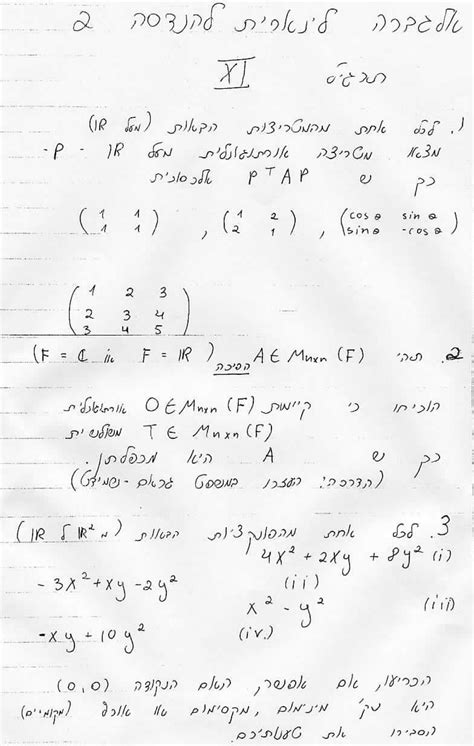 אלגברה לינארית להנדסה 2
תרגיל XI
1. לכל אחת מהמטריצות הבאות (מעל IR)
מצאו מטריצה אורתוגונלית מעל IR - P -
כך ש PᵀAP אלכסונית
( 1 1 ; 1 1 ) , ( 1 2 ; 2 1 ) , ( cos θ sin θ ; sin θ -cos θ )
( 1 2 3 ; 2 3 4 ; 3 4 5 )
2. תהי A ∈ Mnxn (F) הפיכה (F = ℂ או F = IR)
הוכיחו כי קיימות O ∈ Mnxn (F) אורתוגונלית
T ∈ Mnxn (F) משולשית
כך ש A היא מכפלתן.
(הדרכה: העזרו במשפט גראם-שמידט)
3. לכל אחת מהפונקציות הבאות (מ IR² ל IR)
(i) 4x² + 2xy + 8y²
(ii) -3x² + xy - 2y²
(iii) x² - y²
(iv.) -xy + 10y²
הכריעו, אם אפשר, האם הנקודה (0,0)
היא נק' מינימום, מקסימום או אוכף (מקומיים)
הסבירו את טענותיכם.